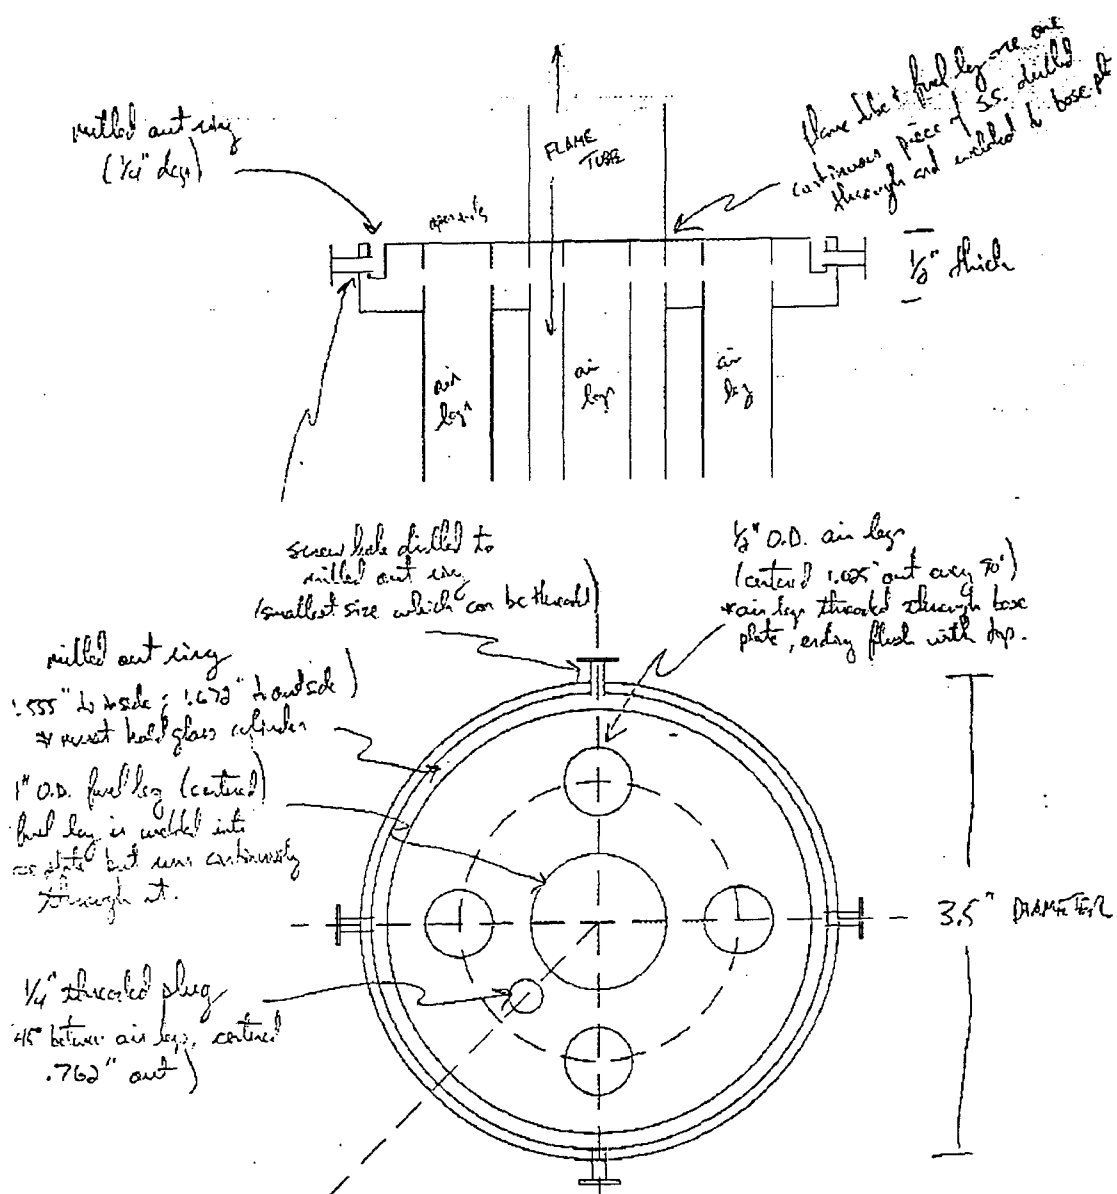 milled out ring
(1/4" deep)
FLAME
TUBE
flame tube & fuel leg are one
continuous piece of S.S. drilled
through and welded to base pla
1/2" thick
air
legs
air
legs
air
leg
screw hole drilled to
milled out ring
(smallest size which can be thread)
1/2" O.D. air legs
(centered 1.025" out every 90°)
*air legs threaded through base
plate, ending flush with top.
milled out ring
1.555" to inside; 1.672" to outside)
* must hold glass cylinder
1" O.D. fuel leg (centered)
fuel leg is welded into
plate but runs continuously
through it.
3.5" DIAMETER
1/4" threaded plug
45° between air legs, centered
.762" out)